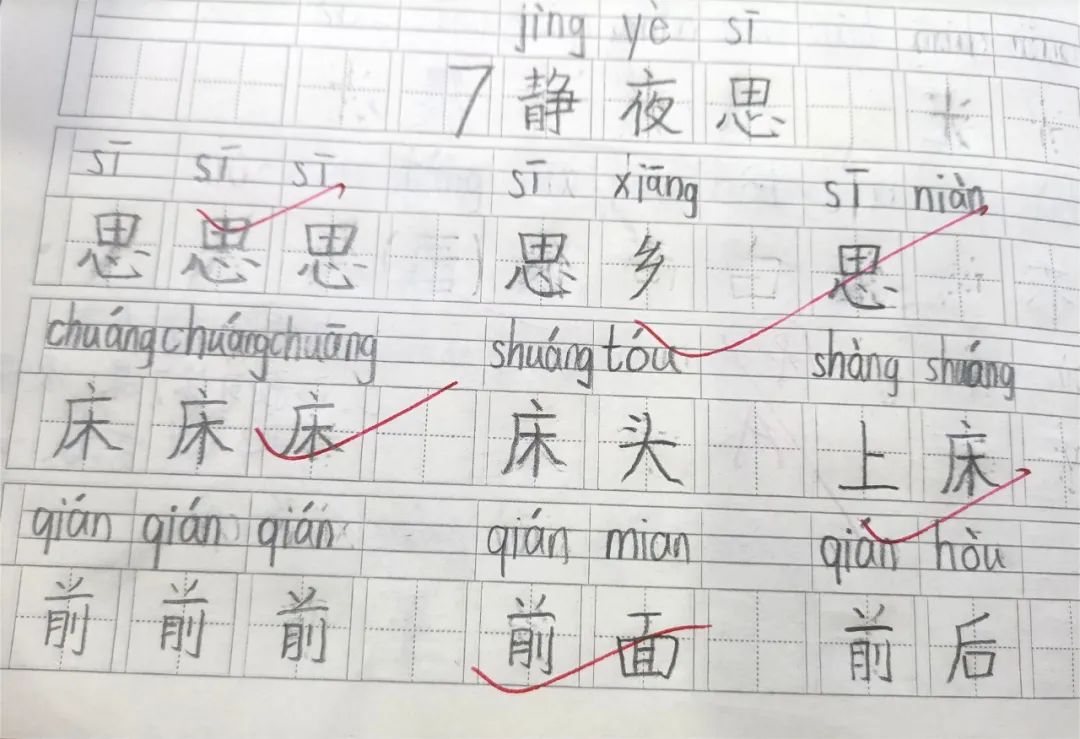 jìng yè sī
7 静 夜 思
sī sī sī sī xiāng sī niàn
思 思 思 思 乡 思
chuáng chuáng chuāng shuáng tóu shàng shuáng
床 床 床 床 头 上 床
qián qián qián qián mian qián hòu
前 前 前 前 面 前 后